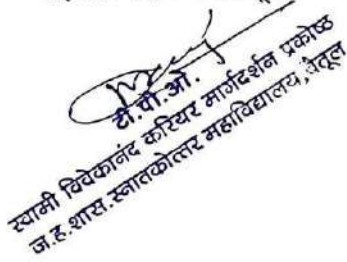 टी.पी.ओ.
स्वामी विवेकानंद करियर मार्गदर्शन प्रकोष्ठ
ज.ह.शास.स्नातकोत्तर महाविद्यालय,बैतूल